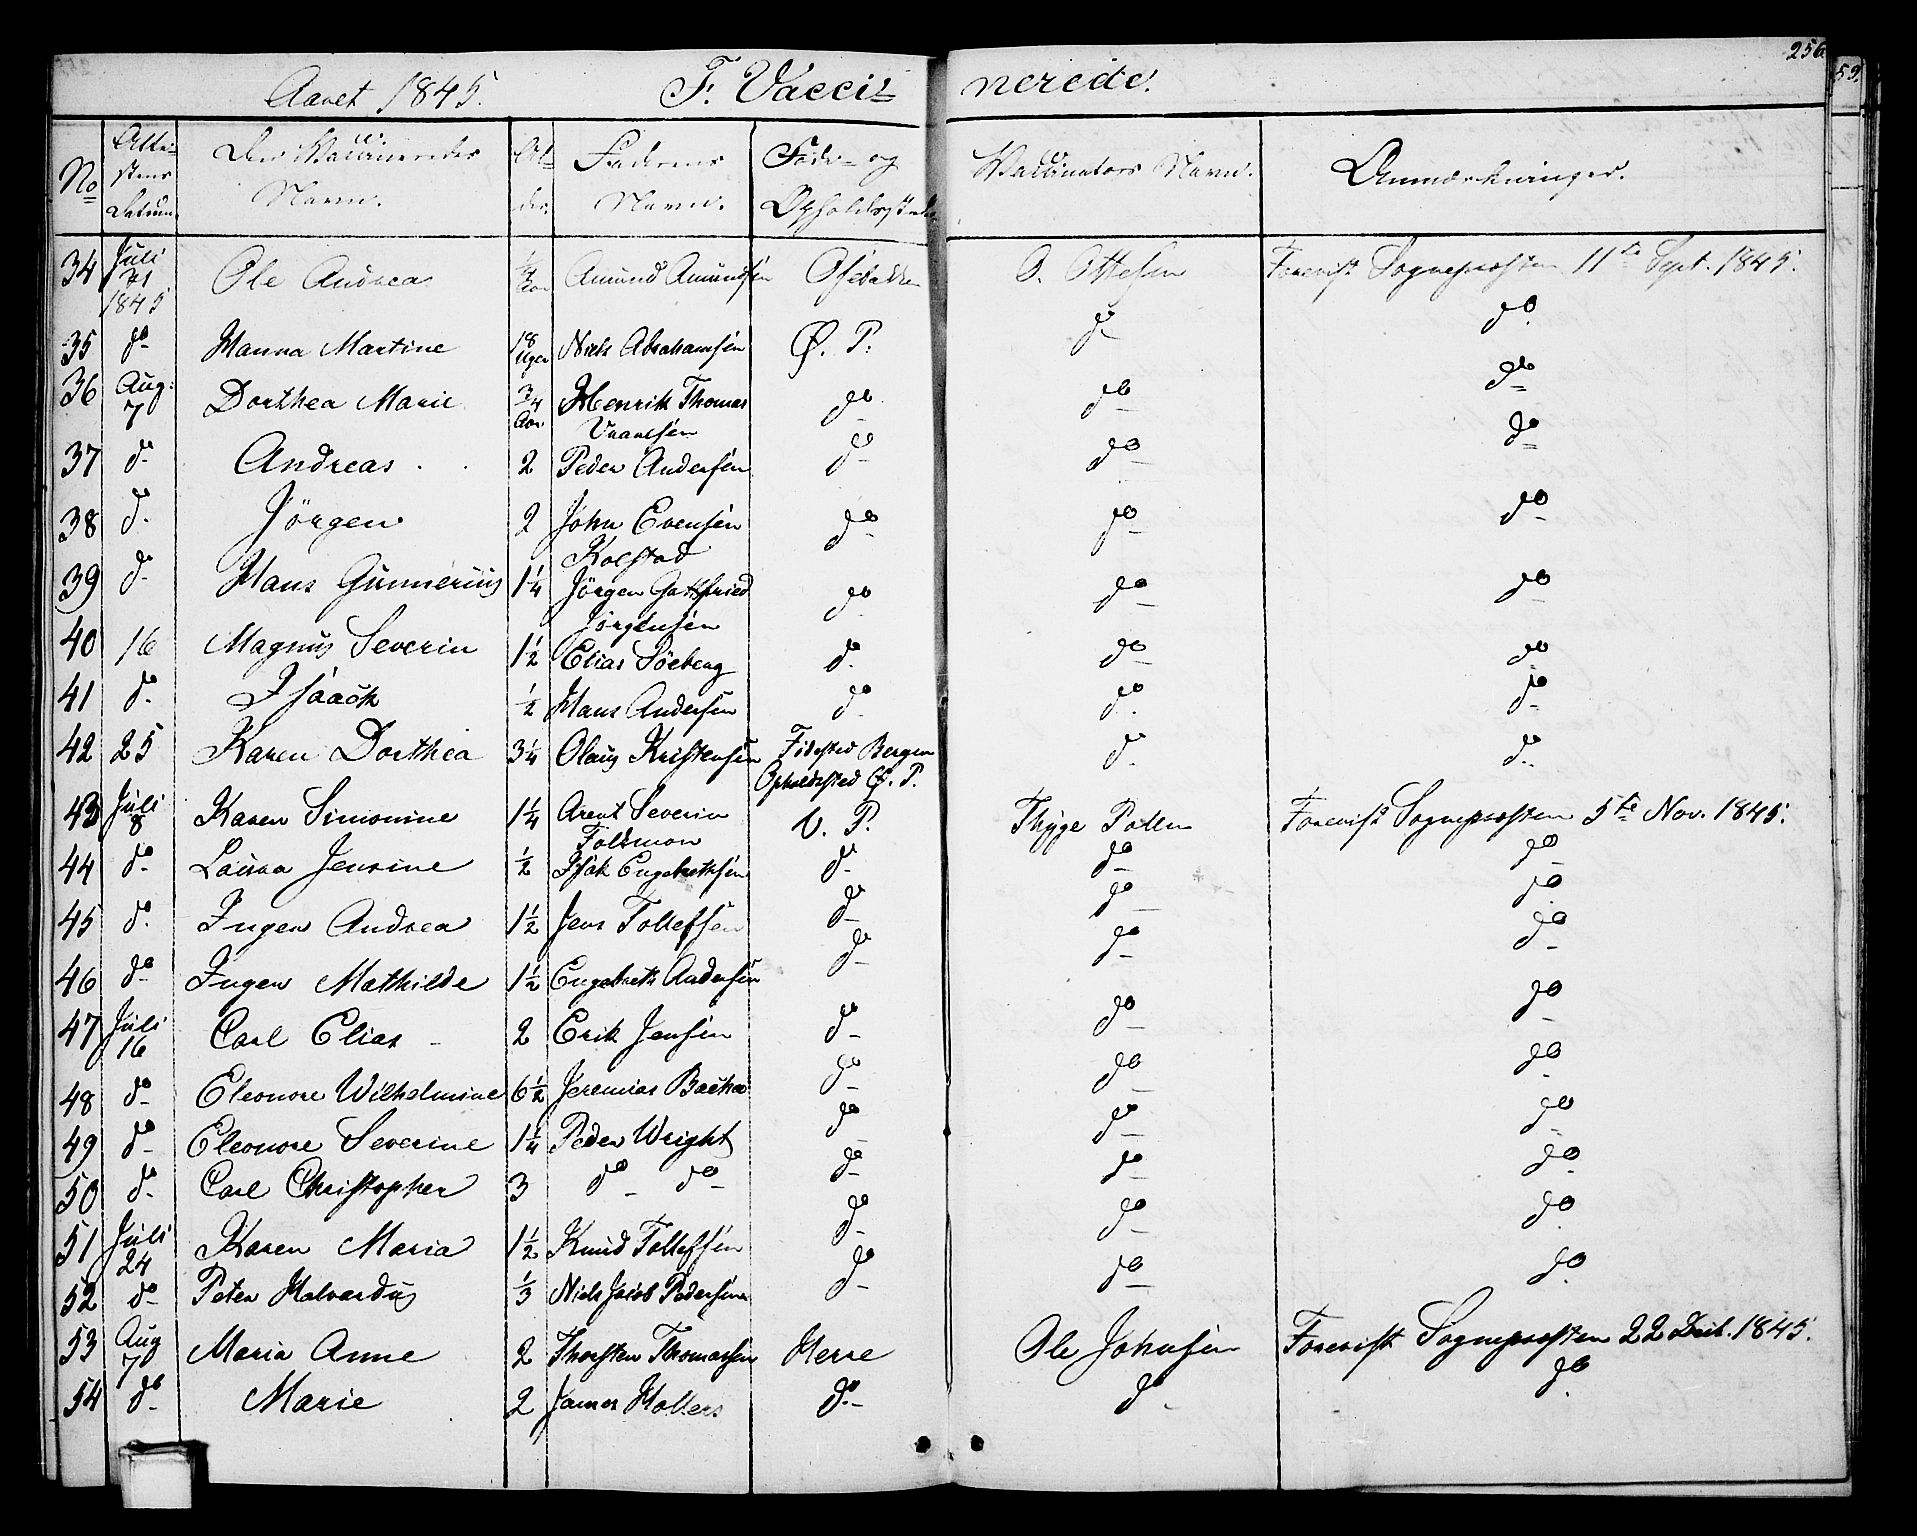 256
59.
Aaret 1845. F. Vacci= nerede.
No Atte= stens Datum. Den Vaccineredes Navn. Al= der. Faderens Navn. Føde- og Opholdssteder Vaccinators Navn. Anmærkninger.
34 Juli 31 1845 Ole Andrea ¼ Aar Amund Amundsen Osebakken O. Ottesen Forevist Sognepresten 11te Sept. 1845.
35 do Hanna Martine 18 Uger Niels Abrahamsen Ø. P. do do
36 Aug: 7 Dorthea Marie ¾ Aar Henrik Thomas do do do
37 do Andreas 2 Peder Andersen do do do
38 do Jörgen 2 John Evensen Kolstad do do do
39 do Hans Gunnerius 1¼ Jörgen Gottfried Jörgensen do do do
40 16 Magnus Severin 1½ Elias Söeberg do do do
41 do Isaach ½ Hans Andersen do do do
42 25 Karen Dorthea 3¼ Olaus Kristensen Födested Bergen Opholdssted Ø. P. do do
43 Juli 8 Karen Simonine 1¼ Arent Severin Foltmon V. P. Thyge Polle Forevist Sognepresten 5te Nov. 1845.
44 do Laura Jensine ½ Isak Engebrethsen do do do
45 do Inger Andrea 1½ Jens Tollefsen do do do
46 do Inger Mathilde 1½ Engebreth Andersen do do do
47 Juli 16 Carl Elias 2 Erik Jensen do do do
48 do Eleonore Wilhelmine 6½ Jeremias Backa do do do
49 do Eleonore Severine 1¼ Peder Wright do do do
50 do Carl Christopher 3 do do do do do
51 Juli 24 Karen Maria 1½ Knud Tollefsen do do do
52 do Peter Halvardus ⅓ Niels Jacob Pedersen do do do
53 Aug 7 Maria Anne 2 Thorsten Thomassen Herre Ole Johnsen Forevist Sognepresten 22 Decb. 1845.
54 do Marie 2 James Hollers do do do